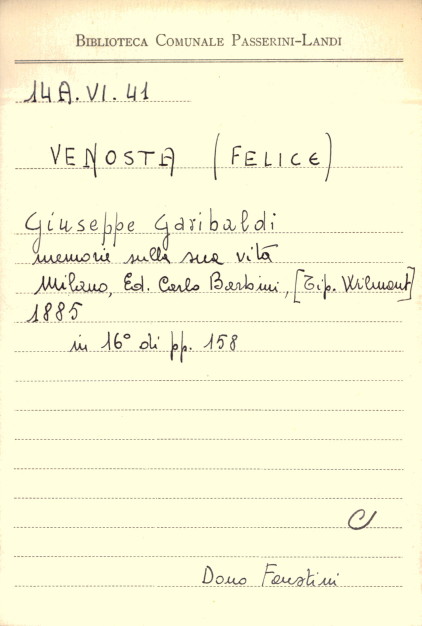 BIBLIOTECA COMUNALE PASSERINI-LANDI
14A.VI.41
VENOSTA (FELICE)
Giuseppe Garibaldi
memorie sulla sua vita
Milano, Ed. Carlo Barbini, [Tip. Wilmant]
1885
in 16° di pp. 158
C
Dono Faustini